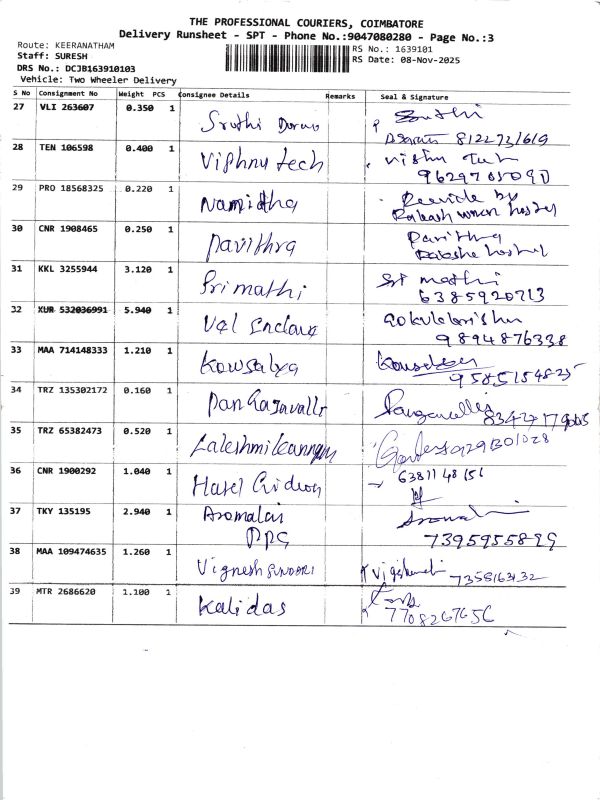 THE PROFESSIONAL COURIERS, COIMBATORE
Delivery Runsheet - SPT - Phone No.:9047080280 - Page No.:3
Route: KEERANATHAM
RS No.: 1639101
Staff: SURESH
RS Date: 08-Nov-2025
DRS No.: DCJB163910103
Vehicle: Two Wheeler Delivery
S No Consignment No Weight PCS Consignee Details Remarks Seal & Signature
27 VLI 263607 0.350 1 Sruthi
8122731619
28 TEN 106598 0.400 1 Vishnu tech
29 PRO 18568325 0.220 1 Namidha
hostel
30 CNR 1908465 0.250 1 Pavithra Pavithra
hostel
31 KKL 3255944 3.120 1 Srimathi Sri mathi
6385920713
32 XUR 532036991 5.940 1 Vel Enclave Gokulakrishn
9894876338
33 MAA 714148333 1.210 1 Kowsalya
9585154825
34 TRZ 135302172 0.160 1
35 TRZ 65382473 0.520 1
36 CNR 1900292 1.040 1 Hotel
37 TKY 135195 2.940 1 Aromalai
PPG
7395955899
38 MAA 109474635 1.260 1 Vignesh
7358163132
39 MTR 2686620 1.100 1 Kalidas
7708267656